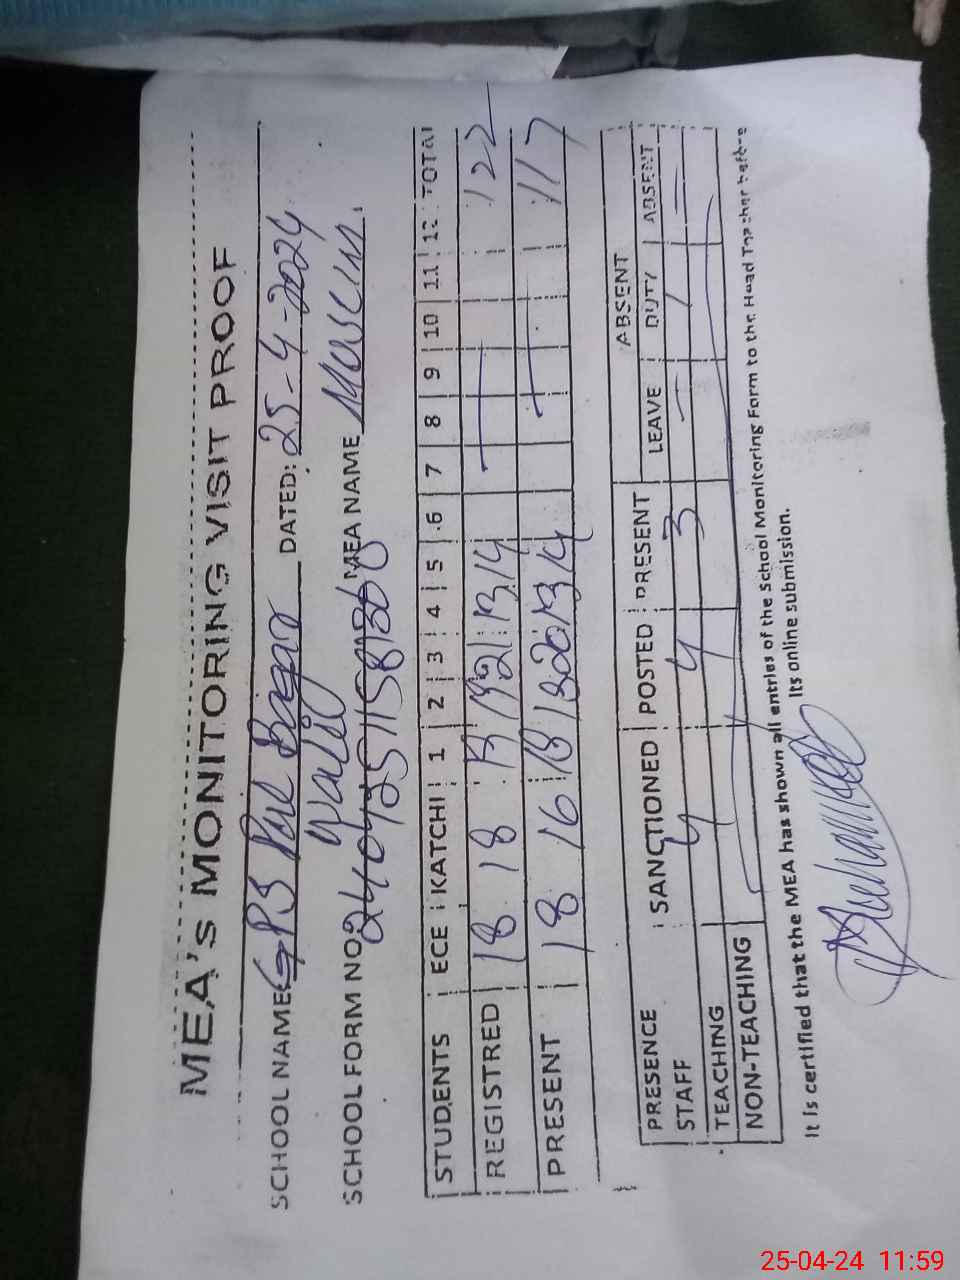 MEA's MONITORING VISIT PROOF
SCHOOL NAME GPS DATED: 25-4-2024
Wali
SCHOOL FORM NO. MEA NAME
STUDENTS ECE KATCHI 1 2 3 4 5 6 7 8 9 10 11 12 TOTAL
REGISTRED 18 18 21 13 14 122
PRESENT 18 16 18 18 20 13 14 117
ABSENT
PRESENCE SANCTIONED POSTED PRESENT LEAVE DUTY ABSENT
STAFF 4 4 3 1
TEACHING
NON-TEACHING
It Is certified that the MEA has shown all entries of the School Monitoring Form to the Head Teacher before
Its online submission.
25-04-24 11:59